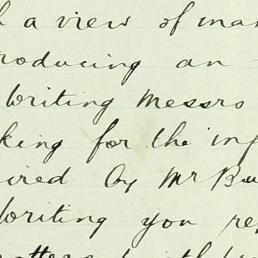 a view of man
roducing an
Writing Messrs
king for the inf
ired by Mr Bu
Writing you re